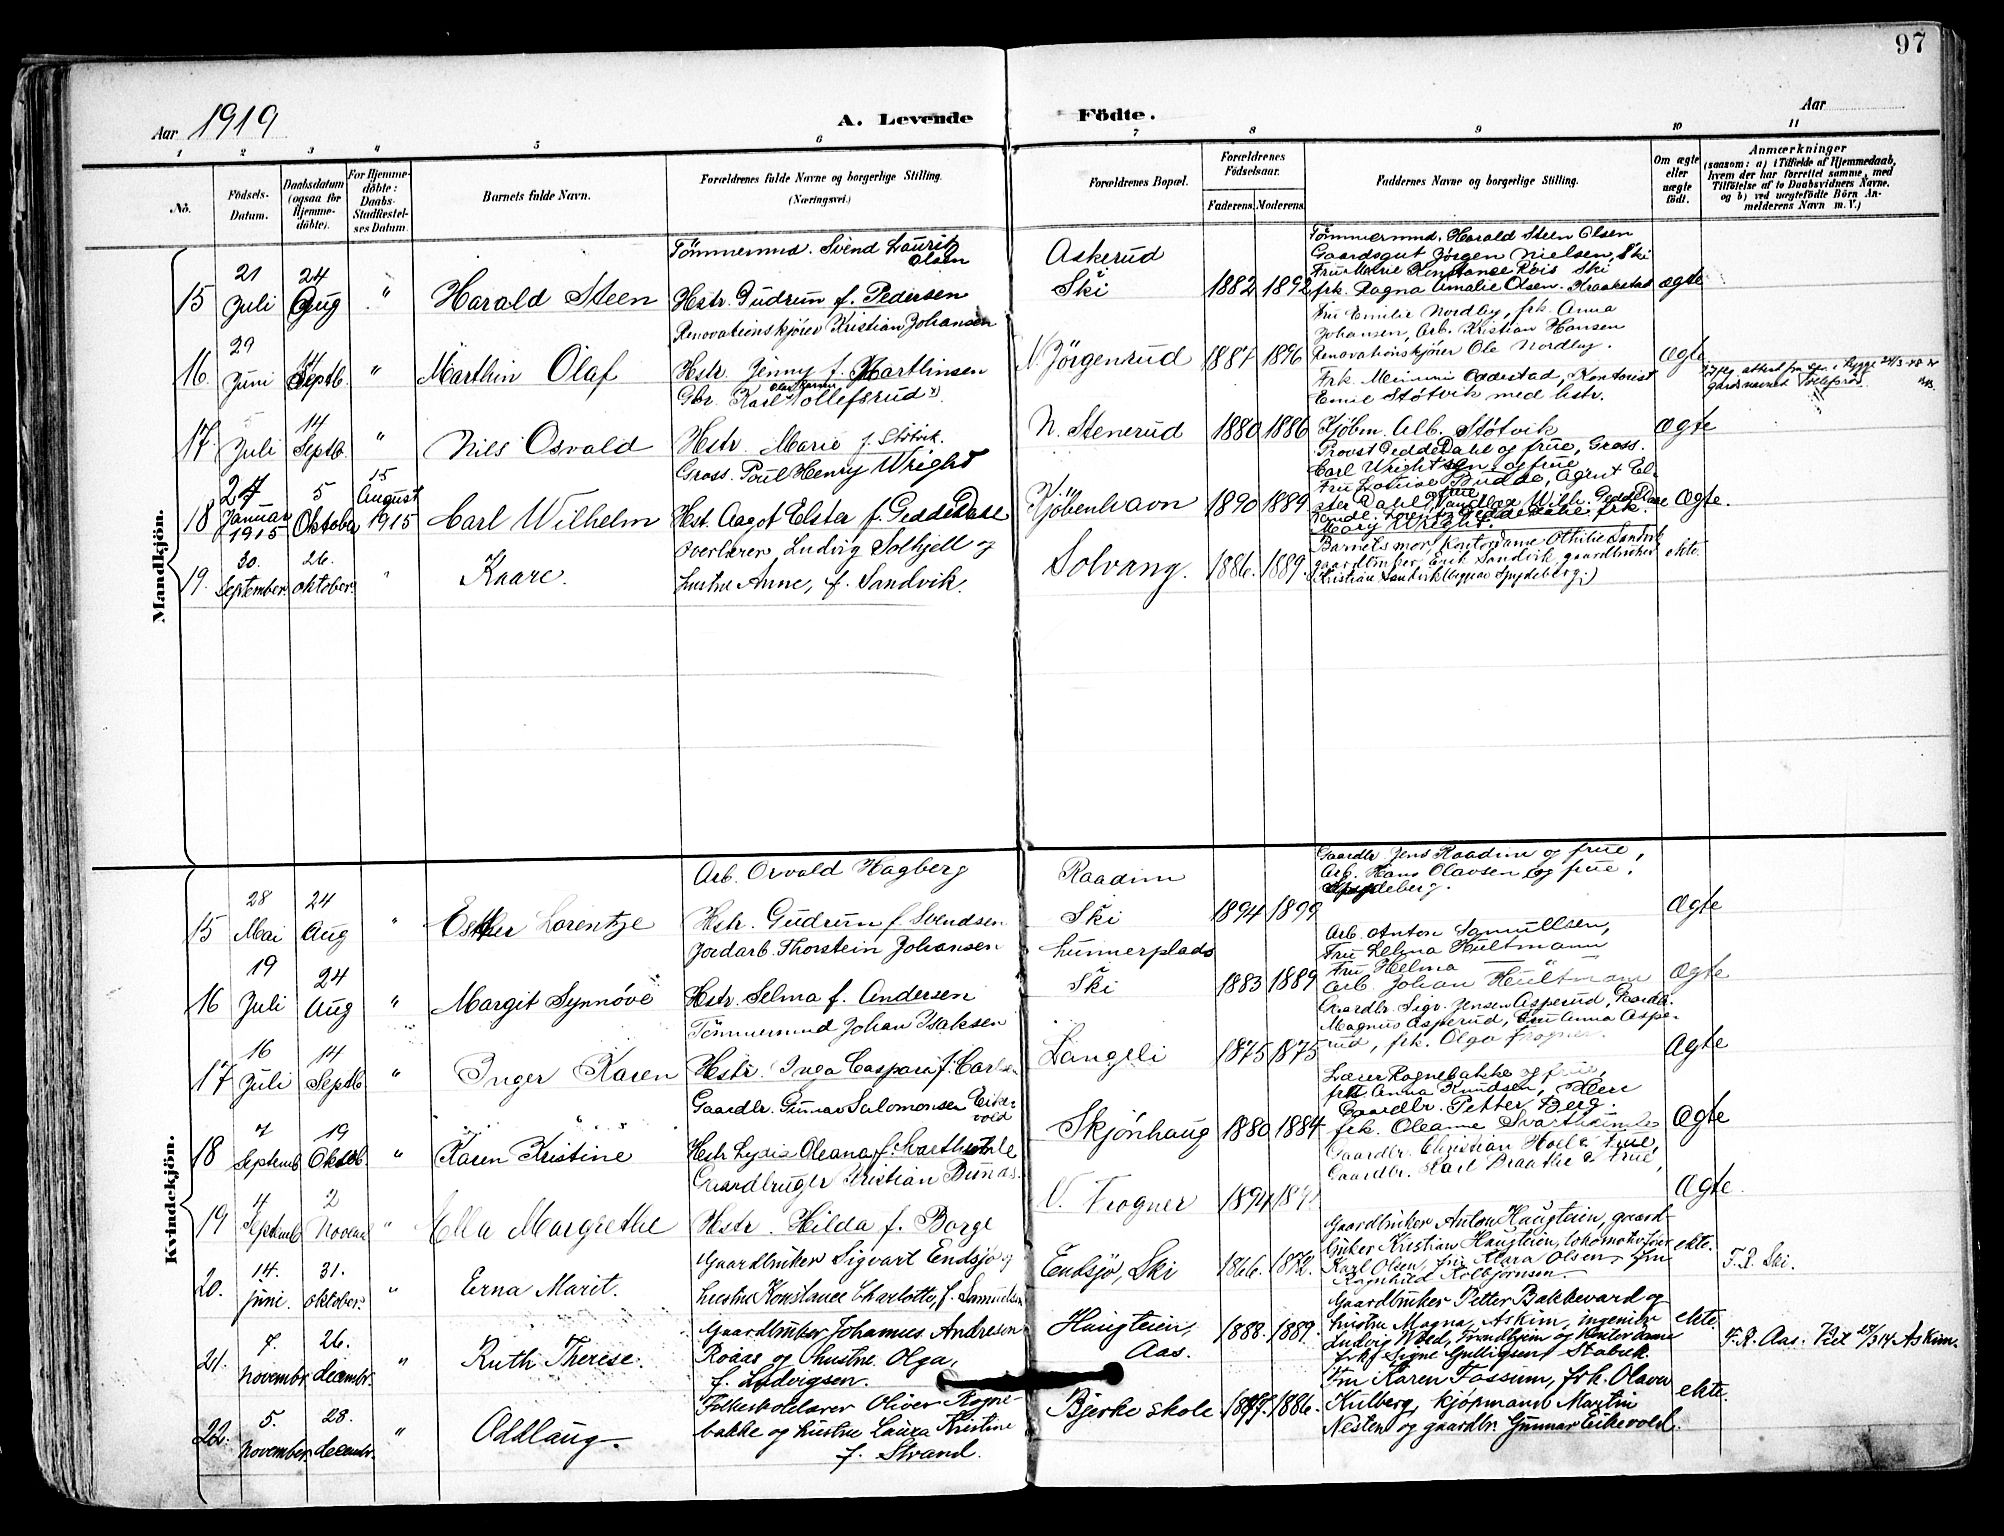 97
Aar 1919
A. Levende Födte.
Aar
1 2 3 4 5 6 7 8 9 10 11
No.
Födsels-Datum.
Daabsdatum (ogsaa for Hjemmedöbte).
For Hjemmedöbte: Daabs-Stadfæstelses Datum.
Barnets fulde Navn.
Forældrenes fulde Navne og borgerlige Stilling. (Næringsvei.)
Forældrenes Bopæl.
Forældrenes Födselsaar.
Faderens. Moderens.
Faddernes Navne og borgerlige Stilling.
Om ægte eller uægte födt.
Anmærkninger
(saasom: a) i Tilfælde af Hjemmedaab, hvem der har forrettet samme, med Tilföielse af to Daabsvidners Navne. og b) ved uægtefödte Börn Anmelderens Navn m. V.)
Mandkjön.
15 21 Juli 24 Aug " Harald Steen
Tömmermnd. Svend Lauritz Olsen
Hstr. Gudrun f. Pedersen
Askerud Ski 1882 1892
Tömmermnd. Harald Steen Olsen
Gaardsgut Jörgen Nielsen, Ski
Fru Marie Konstanse Röis Ski
frk. Ragna Amalie Olsen. Kraakstad
ægte
16 29 Juni 14 Septb. " Marthin Olaf
Renovationskjörer Kristian Johansen
Hstr. Jenny f. Marthinsen
N. Jörgenrud 1887 1896
Fru Emilie Nordby, frk. Anna
Johansen, Arb. Kristian Hansen
Renovationskjörer Ole Nordby.
ægte
17. 5 Juli 14 Septb " Nils Osvald
Gbr. Karl Tollefsrud
Hstr. Marie f. Stötvik.
N. Stenerud 1880 1886
Frk. Mimmi Oadestad, Kontorist
Emil Stötvik med hstr.
Kjöbm. Alb. Stötvik
ægte
gardsnavnet Tollefsrud.
18 27 Januar 1915 5 Oktober 15 August 1915 Carl Wilhelm
Gross. Poul Henry Wright
Hst. Aagot Elster f. Gedde Dahl
Kjöbenhavn 1890 1889
Provst Gedde Dahl og frue, Gross.
Carl Wrightson og frue
Fru Lovise Budde, Agrut El-
ster Dahl, Wilh. Gedde Dahl
Mary Wright.
Ægte.
19. 30. September. 26. oktober. " Kaare.
Overlærer Ludvig Solhjell og
hustru Anne, f. Sandvik.
Solvang. 1886. 1889.
Barnets mor, Kontordame Othilie Sandvik
gaardbruker Erik Sandvik, gaardbruker
Kristian Sandvik (Spydeberg.)
ekte.
Kvindekjön.
15 28 Mai 24 Aug " Esther Lorentze
Arb. Osvald Hagberg
Hstr. Gudrun f. Svendsen
Raadim Ski 1894 1899
Gaardbr Jens Raadim og frue,
Arb. Hans Olavsen og frue.
Spydeberg.
Ægte
16 19 Juli 24 Aug " Margit Synnöve
Jordarb. Thorstein Johansen
Hstr. Selma f. Andersen
hunnerplads Ski 1883 1889
Arb. Anton Samuelsen,
Fru Helma Hultmann
Fru Helma
Arb. Johan Hultmann
Ægte
17 16 Juli 14 Septb " Inger Karen
Tömmermnd Johan Isaksen
Hstr. Inga Caspara f. Carlsen
Langeli 1875 1875
Gaardbr. Sigv. Jensen Asperud, Gaardb.
Magnus Asperud, Fru Anna Aspe-
rud, frk. Olga Frogner.
Ægte
18 7 Septemb 19 Oktob. " Karen Kristine
Gaardbr. Gunnar Salomonsen Eikevold
Hstr Lydia Oleana f. Svartholmle
Skjönhaug 1880 1884
Lærer Ragnebakke og frue,
frk. Anna Knudsen,
Gaardbr. Petter Berg.
frk. Oleanne
Ægte
19 4 Septemb 2 Novemb " Ella Margrethe
Gaardbruger Kristian Bunæs.
Hstr. Hilda f. Borge
N. Frogner 1894
Gaardbr. Christian Hoel & frue,
Gaardbr. Karl Braathe & frue,
Ægte.
20. 14. juni. 31. oktober. " Erna Marit.
Gaardbruker Sigvart Endsjö og
hustru Konstance Charlotte, f. Samuelsen
Endsjö, Ski 1866. 1872.
Gaardbruker Anton Haugteien, gaard-
bruker Kristian Haugteien, lokomotivförer
Karl Olsen, fru Klara Olsen, fru
Ragnhild Kolbjörnsen.
ekte.
F. R. Ski.
21. 7. novembr. 26. decembr. " Ruth Therese.
Gaardbruker Johannes Andresen
Roaas og hustru Olga,
f. Ludvigsen.
Haugteien, Aas. 1888. 1889.
Gaardbruker Petter Bakkevard og
hustru Magna, Askim, ingeniør
Ludvig Wold, Trondhjem og kontordame
frk. Signe Gulliksen Stabek
ekte.
F. R. Aas. Viet 27/3 14 Askim.
22. 5. november. 28. decembr. " Oddlaug.
Folkeskolelærer Oliver Ragne-
bakke og hustru Laura Kristine
f. Strand.
Bjerke skole 1889. 1886.
Fru Karen Fossum, frk. Olava
Hulberg, kjöpmand Martin
Nesten og gaardbr. Gunnar Eikevold.
ekte.